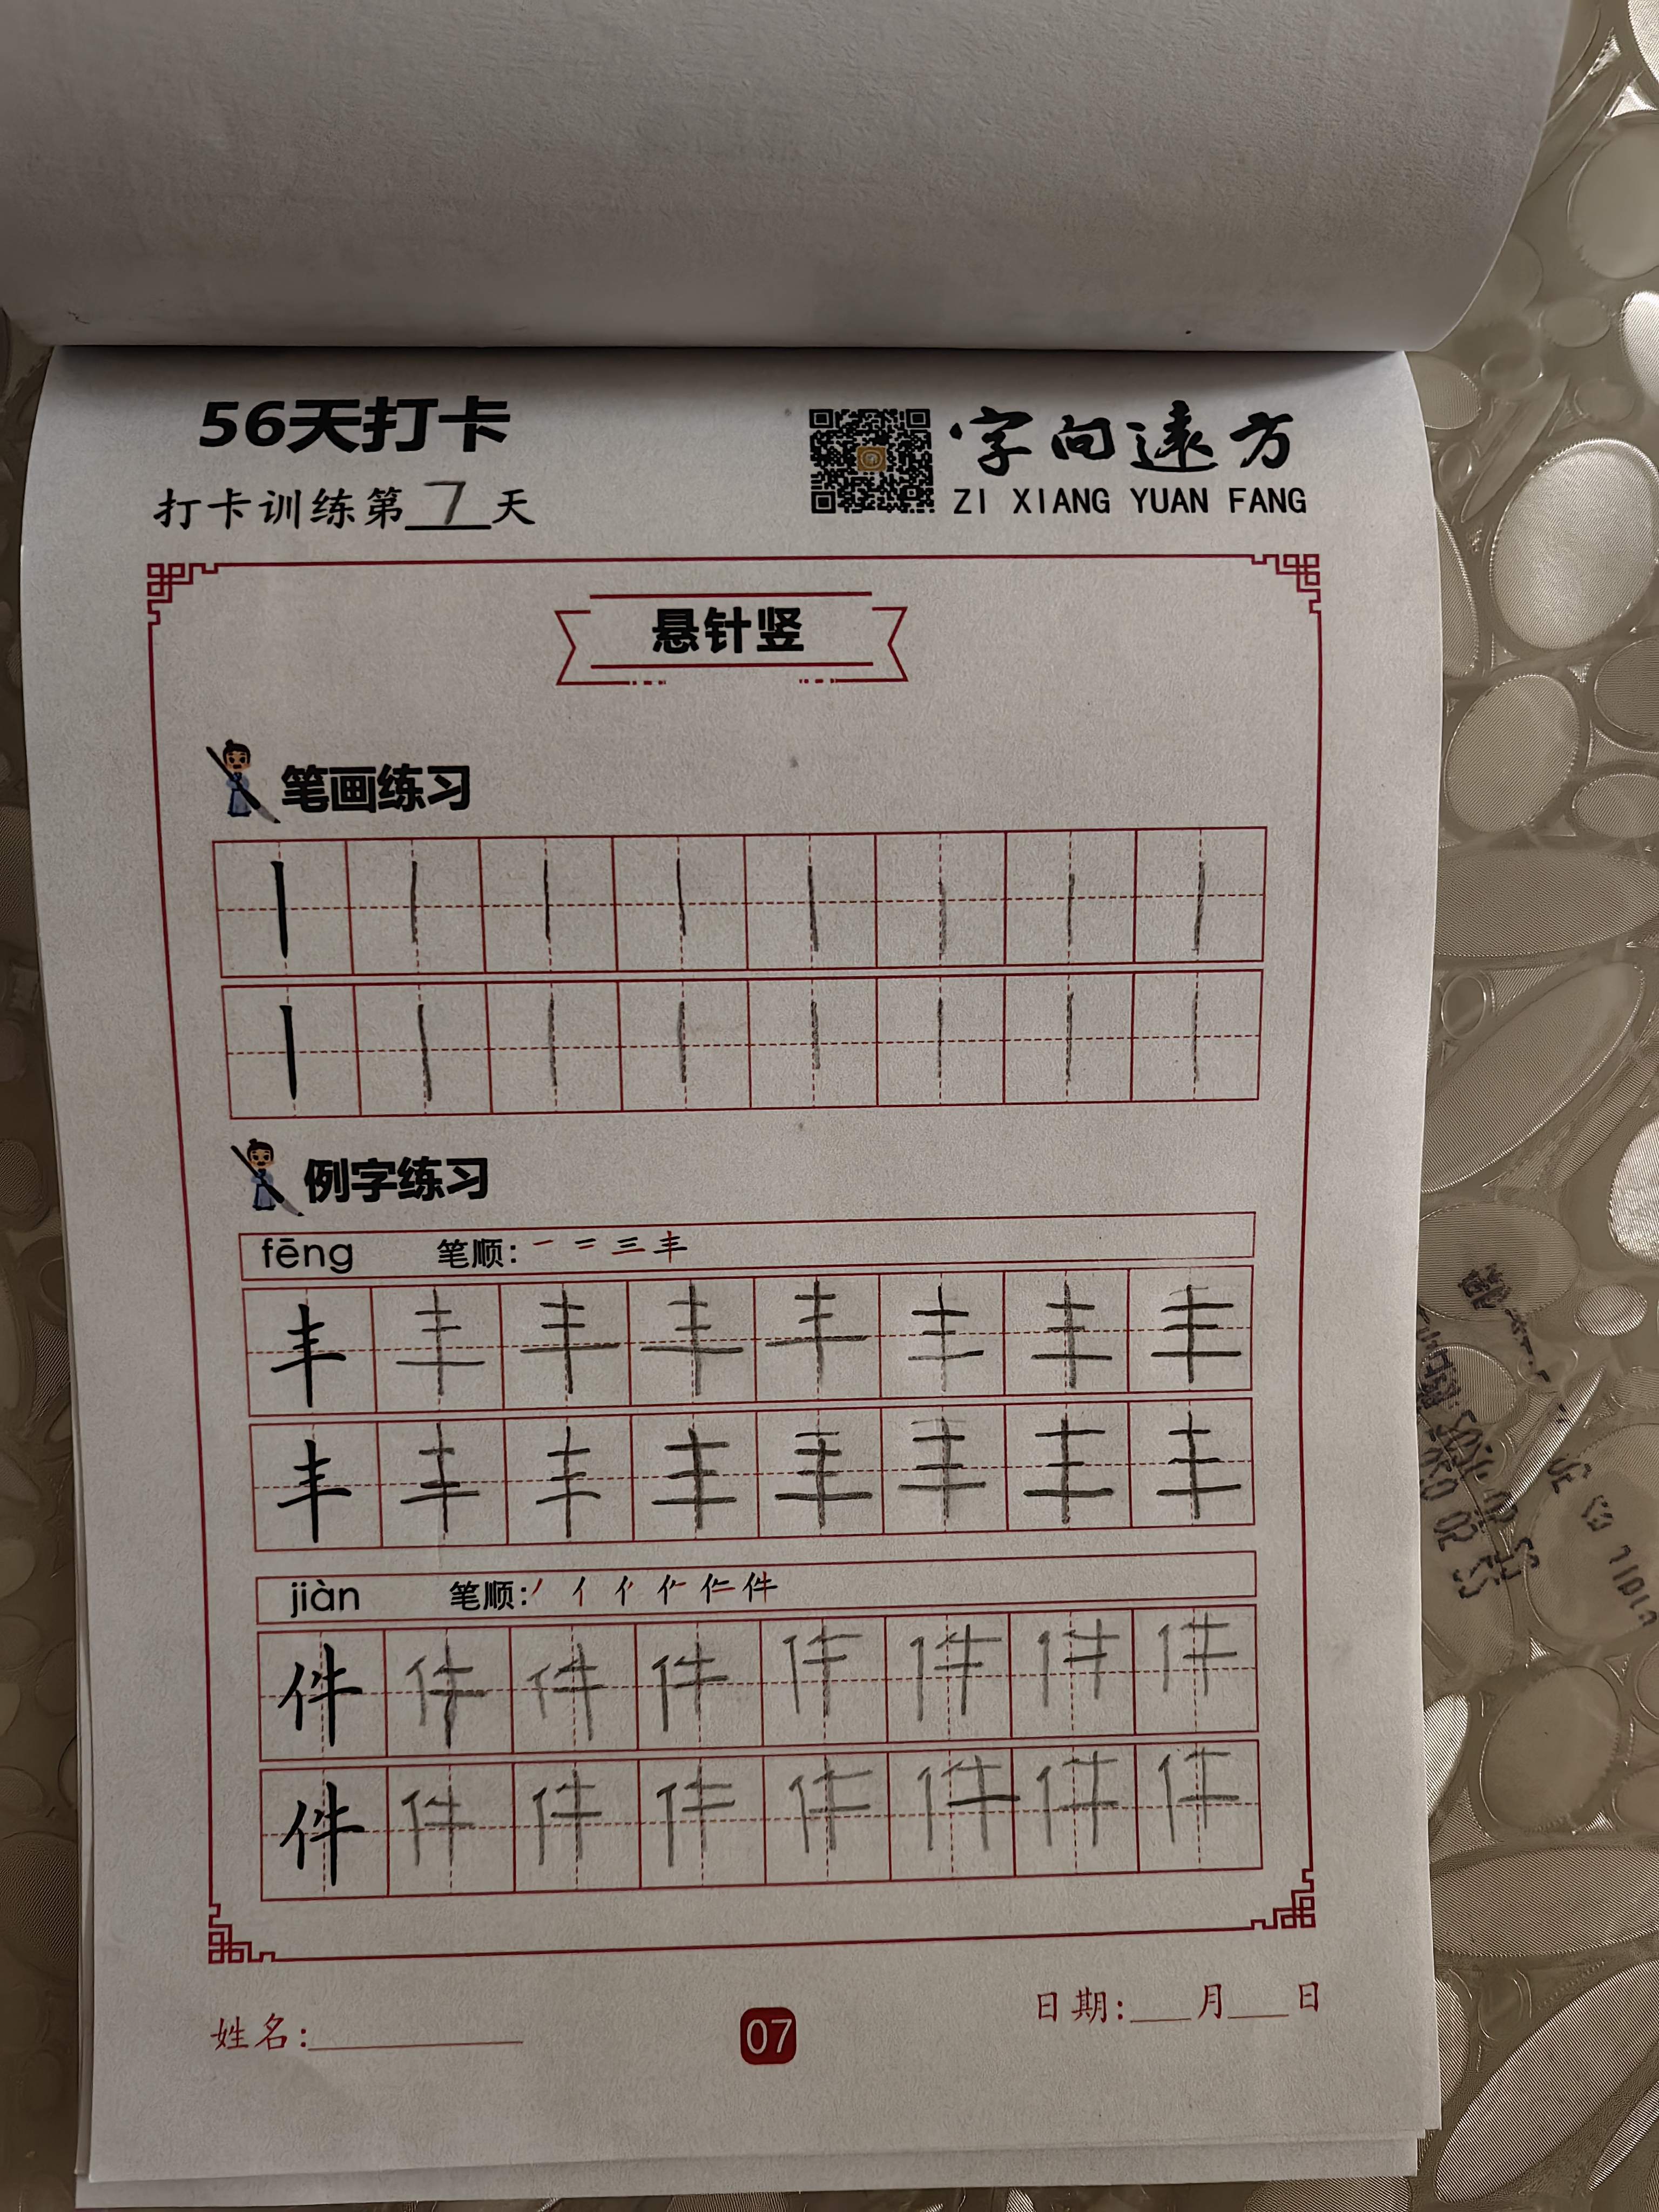 56天打卡
字向远方
打卡训练第7天
ZI XIANG YUAN FANG
悬针竖
笔画练习
丨丨丨丨丨丨丨丨
丨丨丨丨丨丨丨丨
例字练习
fēng 笔顺: 一 二 三 丰
丰丰丰丰丰丰丰丰
丰丰丰丰丰丰丰丰
jiàn 笔顺: 丿 亻 件
件件件件件件件件
件件件件件件件件
姓名:
07
日期: 月 日